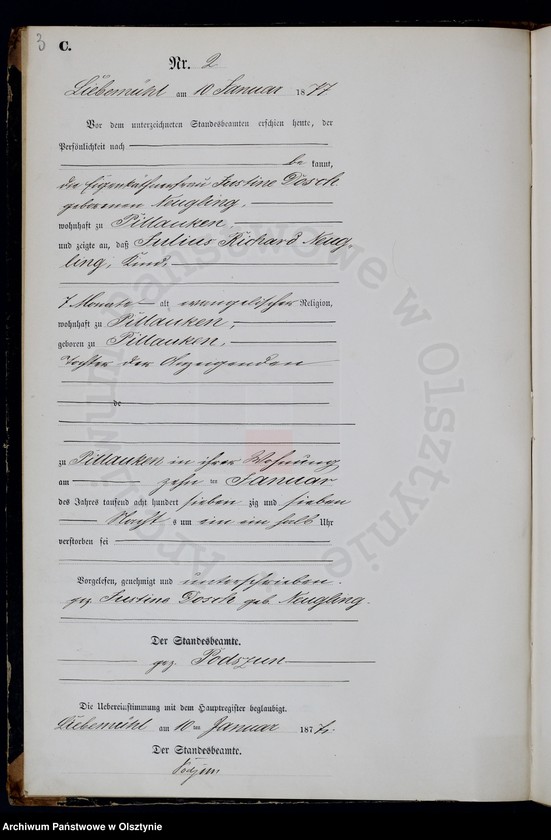 3
C.
Nr. 2
Liebemühl am 10 Januar 1877
Vor dem unterzeichneten Standesbeamten erschien heute, der
Persönlichkeit nach
be kannt,
die Eigenkäthnerfrau Justine Dosch
geborenen Neugling,
wohnhaft zu Pillauken,
und zeigte an, daß Julius Richard Neug-
ling, Kind,
7 Monate alt evangelischer Religion,
wohnhaft zu Pillauken,
geboren zu Pillauken,
Tochter der Anzeigenden
de
zu Pillauken in ihrer Wohnung
am zehn ten Januar
des Jahres tausend acht hundert sieben zig und sieben
Nacht s um ein ein halb Uhr
verstorben sei
Vorgelesen, genehmigt und unterschrieben.
gez. Justine Dosch geb. Neugling.
Der Standesbeamte.
gez. Podszun
Die Uebereinstimmung mit dem Hauptregister beglaubigt.
Liebemühl am 10 ten Januar 1877.
Der Standesbeamte.
Archiwum Państwowe w Olsztynie
Archiwum Państwowe w Olsztynie